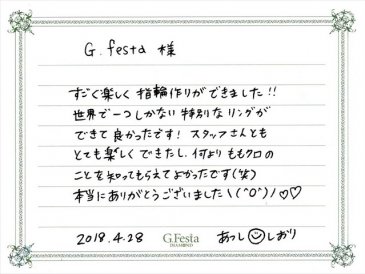 G.festa 様
すごく楽しく指輪作りができました!!
世界で一つしかない特別なリングが
できて良かったです!スタッフさんとも
とても楽しくできたし、何よりももクロの
ことを知ってもらえてよかったです(笑)
本当にありがとうございました\(^O^)/♡♡
2018.4.28 G.Festa DIAMOND あつし☺しおり